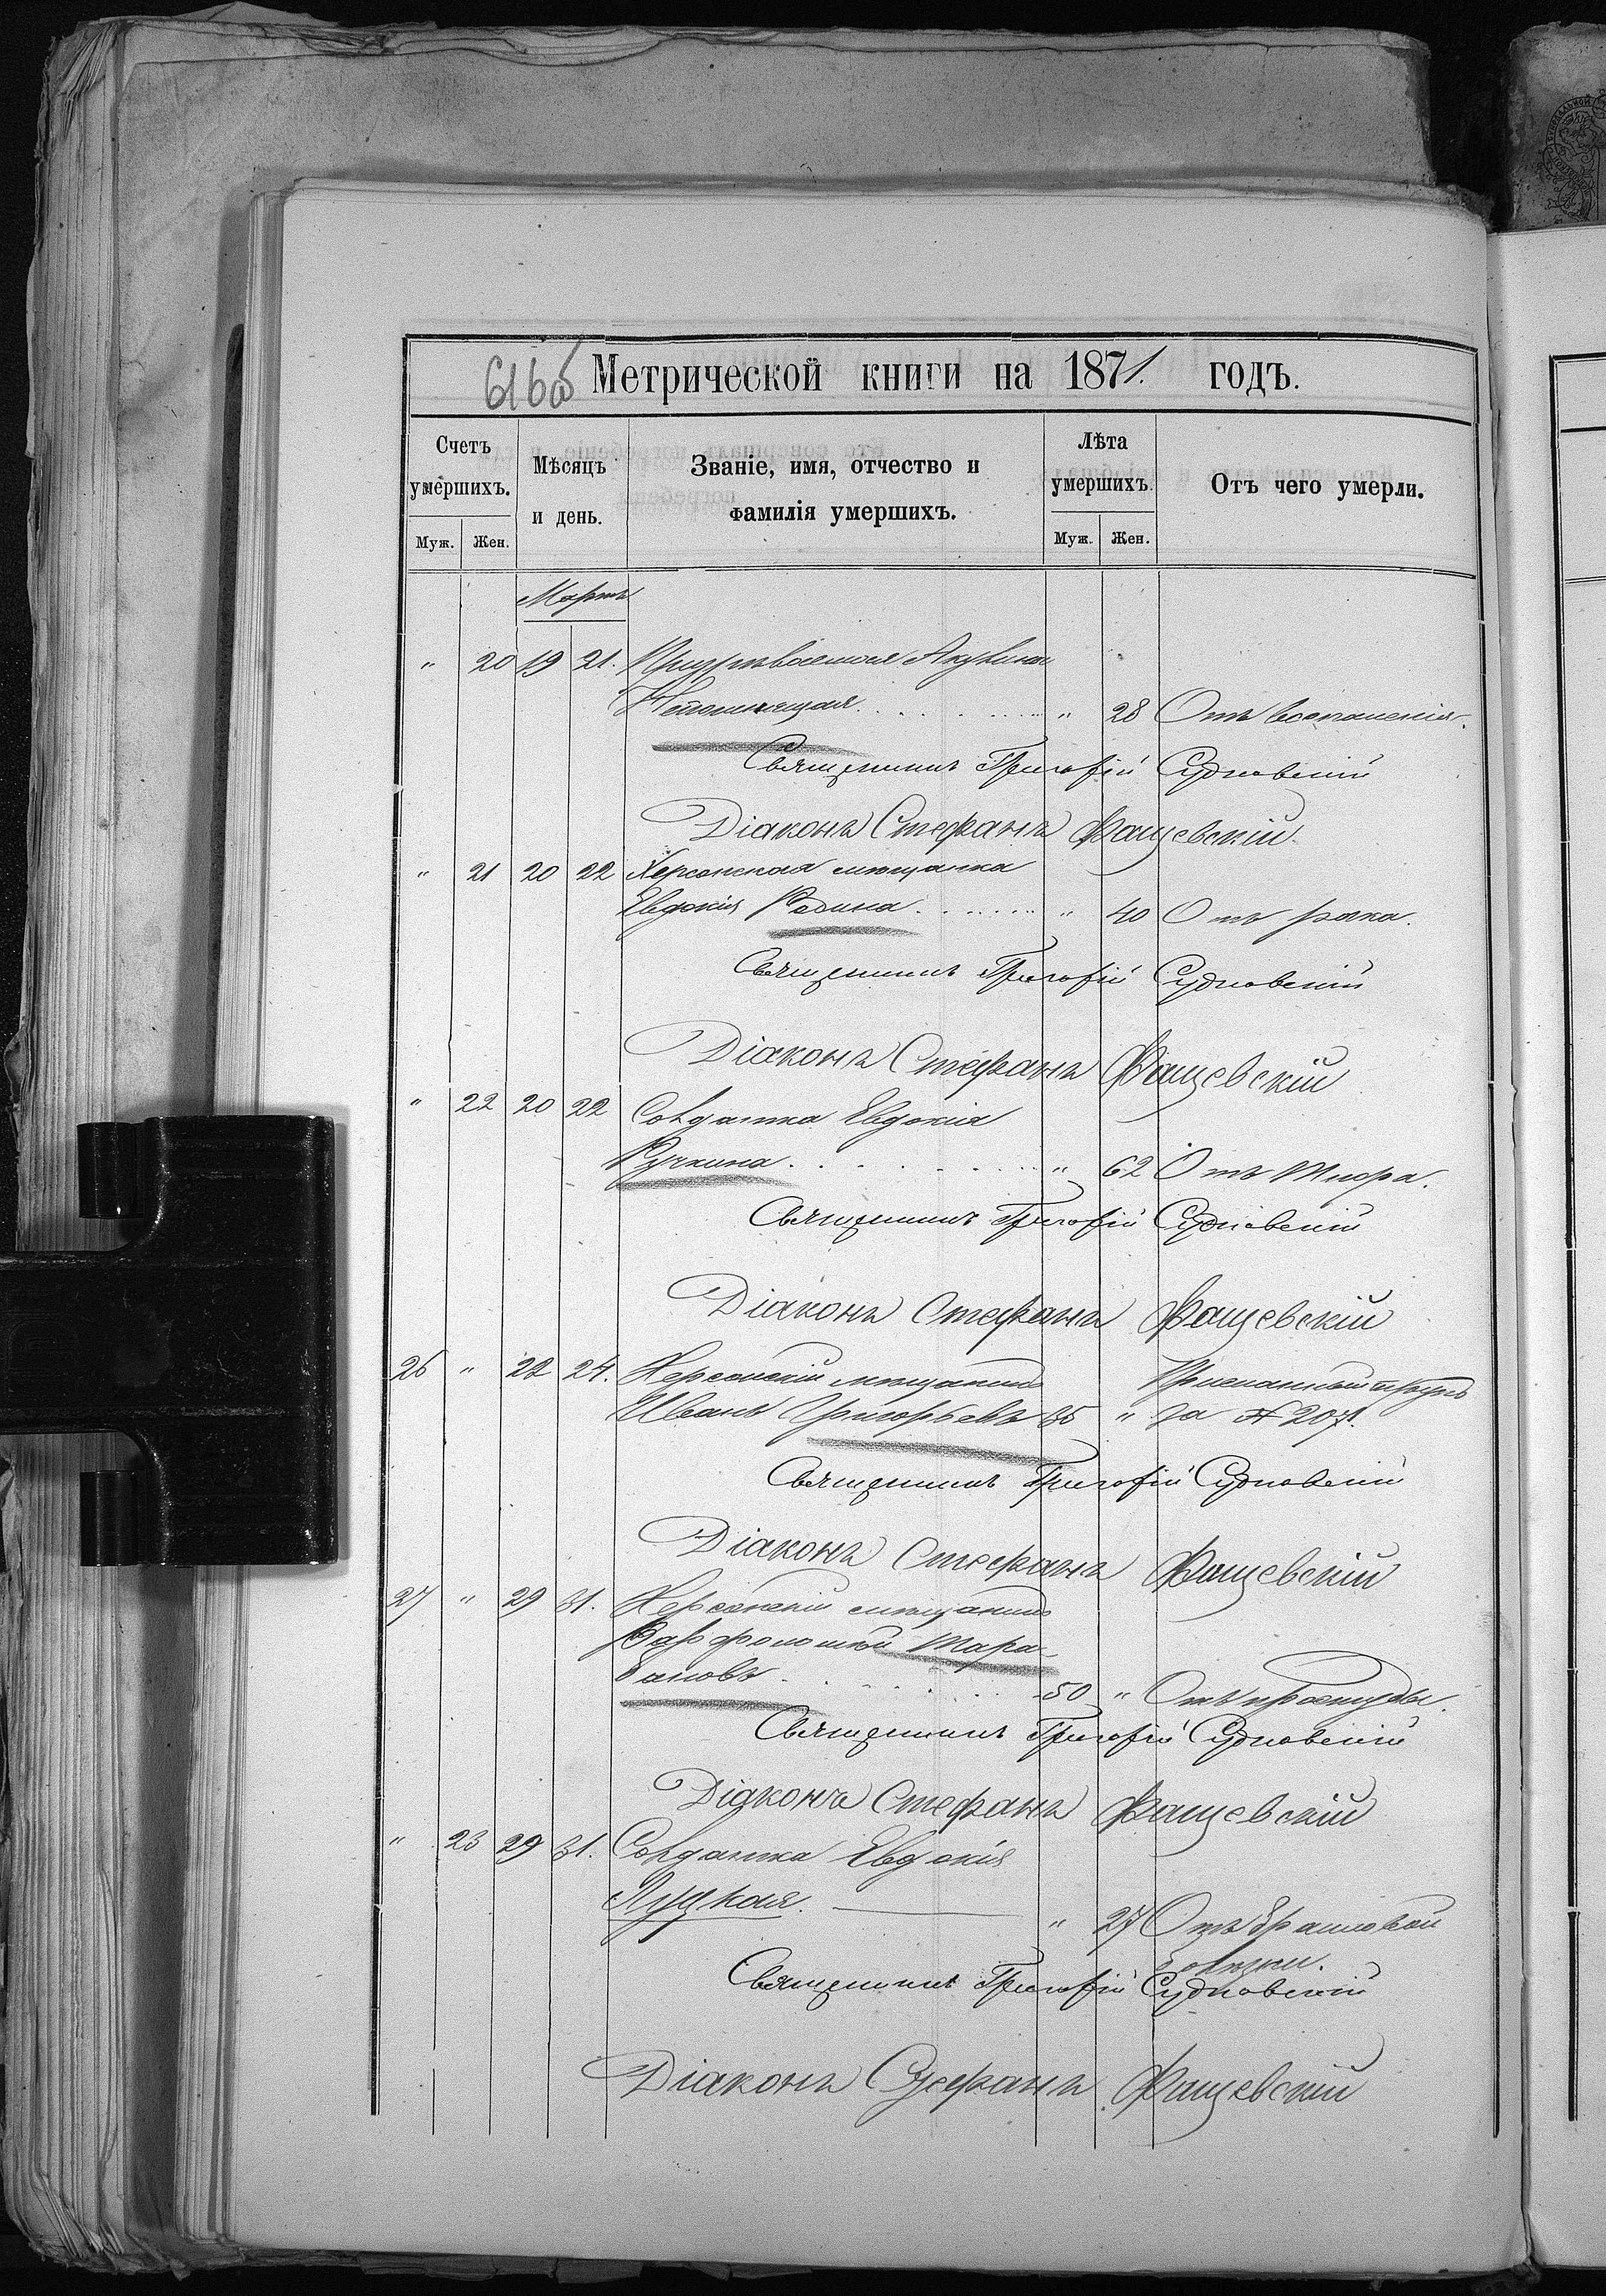 616об Метрической книги на 1871. годъ.
Счетъ умершихъ.
Муж. Жен.
Мѣсяцъ и день.
Званіе, имя, отчество и
фамилія умершихъ.
Лѣта умершихъ.
Муж. Жен.
Отъ чего умерли.
Мартъ
" 20 19 21. Призрѣваемая Акулина
Непомнящая " 28 Отъ воспаленія.
Священникъ Григорій Судковскій
Діаконъ Стефанъ Фащевскій
" 21 20 22 Херсонская мѣщанка
Евдокія Родина " 40 Отъ рака.
Священникъ Григорій Судковскій
Діаконъ Стефанъ Фащевскій
" 22 20 22 Солдатка Евдокія
Ручкина " 62 Отъ тифа.
Священникъ Григорій Судковскій
Діаконъ Стефанъ Фащевскій
26 " 22 24. Херсонскій мѣщанинъ
Иванъ Григорьевъ 35 " за № 2071.
Священникъ Григорій Судковскій
Діаконъ Стефанъ Фащевскій
27 " 29 31. Херсонскій мѣщанинъ
Варфоломей Тара-
бановъ 50 " Отъ простуды.
Священникъ Григорій Судковскій
Діаконъ Стефанъ Фащевскій
" 23 29 31. Солдатка Евдокія
Луцкая. " 27 Отъ
Священникъ Григорій Судковскій
Діаконъ Стефанъ Фащевскій